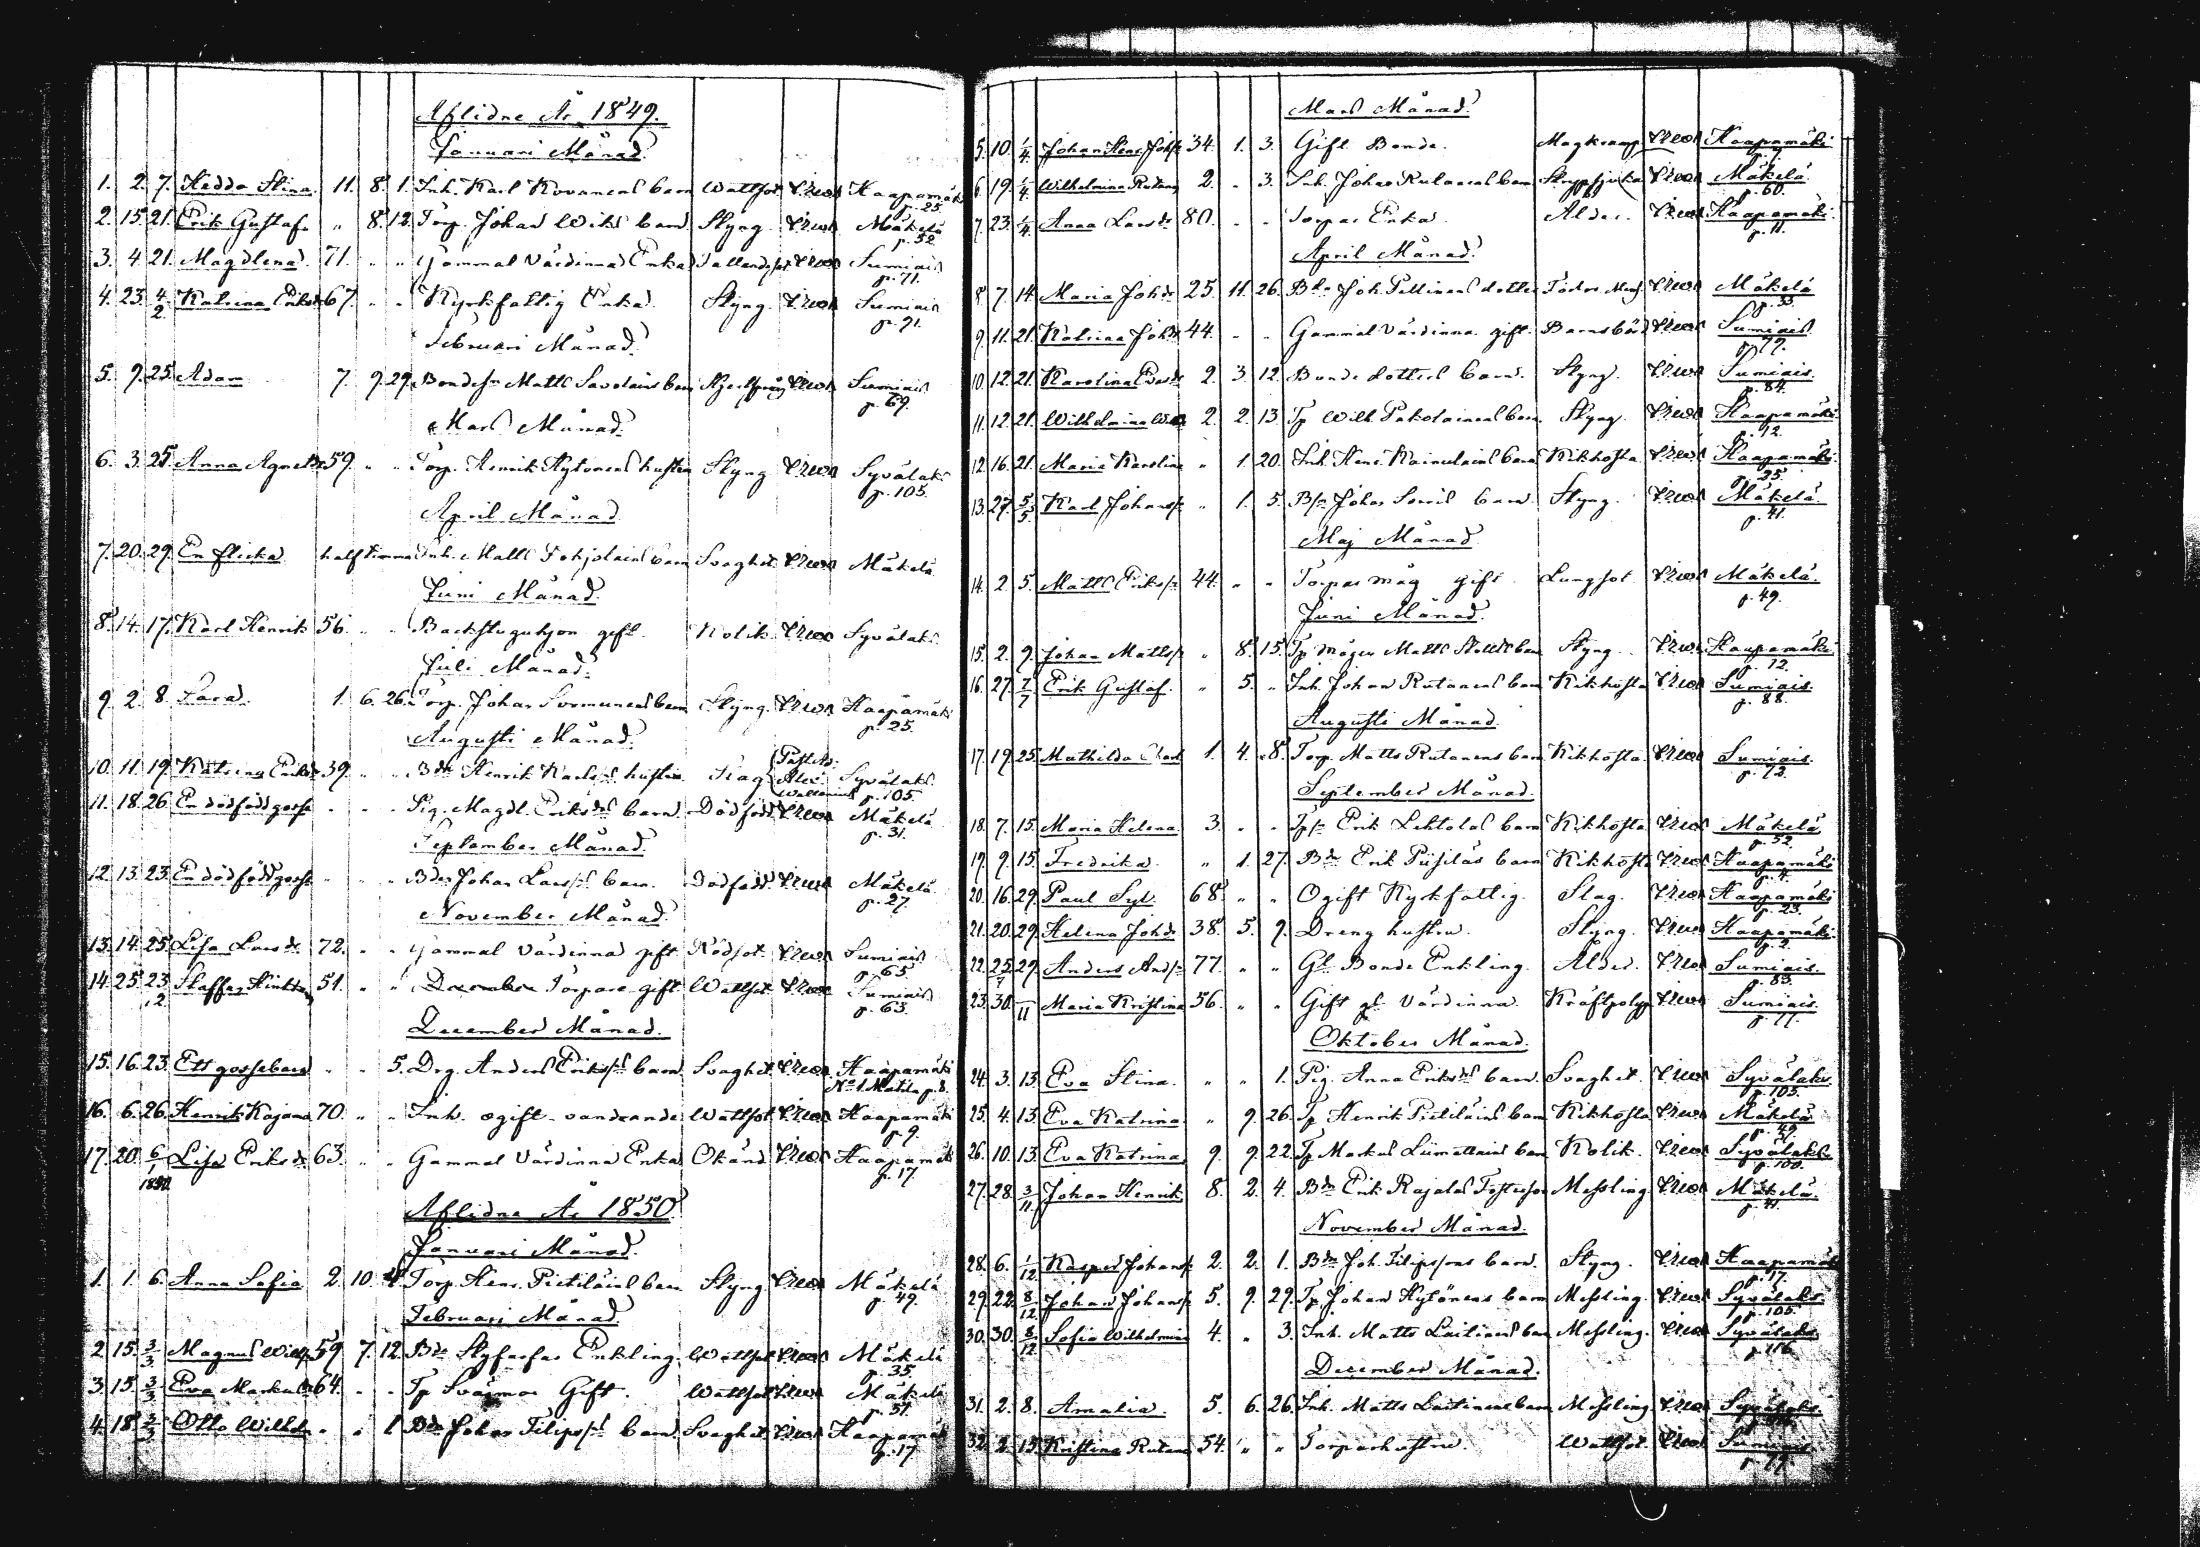 Aflidne År 1849.
Januari Månad.
1. 2. 7. Hedda Stina 11. 8. 1. Inh. Karl Kovanens barn Wattsot Haapamäki p. 25.
2. 15. 21. Erik Gustaf " 8. 12. Torp. Johan Wiks barn Styng Mäkelä p. 52.
3. 4. 21. Magdlena 71. " " Gammal Värdinna Enka Sumiais p. 71.
4. 23. 4/2 Katrina Eriksdr 67. " " Kyrkfattig Enka. Styng. Sumiais p. 91.
Februari Månad.
5. 9. 25. Adam 7. 9. 29. Bondesn Matts Savolains barn Sumiais p. 69.
Mars Månad.
6. 3. 25. Anna Agneta 59. " " Torp. Henrik Hytönens hustru Styng Syvälaks p. 105.
April Månad
7. 20. 29. En flicka half timma Inh. Matts Pohjolains barn Svaghet Mäkelä
Juni Månad.
8. 14. 17. Karl Henrik 56. " " Backstuguhjon gift. Kolik Syvälaks
Juli Månad.
9. 2. 8. Sara. 1. 6. 26. Torp. Johan Sormunens barn Styng. Haapamäki p. 25.
Augusti Månad.
10. 11. 19. Katrina Eriksdr 39. " " Bde Henrik Karlss hustru Slag Past. Adj. Alex. Syvälaks p. 105.
11. 18. 26. En dödfödd gosse " " " Pig. Magdl. Eriksdrs barn Dödfödd Mäkelä p. 31.
September Månad.
12. 13. 23. En dödfödd gosse " " " Bde Johan Larsss barn. Dödfödd Mäkelä p. 27.
November Månad.
13. 14. 25. Lisa Larsdr 72. " " Gammal Värdinna gift Rödsot Sumiais p. 65.
14. 25. 23/12 Staffan 51. " " Torpare gift Wattsot Sumiais p. 63.
December Månad.
15. 16. 23. Ett gossebarn " " 5. Drg. Anders Erikss barn Svaghet Haapamäki No 1 Mattla p. 8.
16. 6. 26. Henrik Kajana 70. " " Inh. ogift vandrande Wattsot Haapamäki p. 9.
17. 20. 6/1 1850. Lisa Eriksdr 63. " " Gammal Värdinna Enka Okänd Haapamäki p. 17.
Aflidne År 1850.
Januari Månad.
1. 1. 6. Anna Sofia 2. 10. 4. Torp. Henr. Pietiläins barn Styng Mäkelä p. 49.
Februari Månad.
2. 15. 3/3 Magnus 59. 7. 12. Bde Styffarfar Enkling. Wattsot Mäkelä p. 35.
3. 15. 3/3 Eva Markusdr 64. " " Tp Svärmor Gift. Wattsot Mäkelä p. 51.
4. 18. 3/3 Otto Wilhelm " " 1. Bde Johan Filipss barn. Svaghet Haapamäki p. 17.
Mars Månad.
5. 10. 1/4. Johan Henr. Johss 34. 1. 3. Gift Bonde. Magkramp Haapamäki
6. 19. 1/4. Wilhelmina Rutan 2. " 3. Inh. Johan Rutanens barn Mäkelä p. 60.
7. 23. 1/4. Anna Larsdr 80. " " Torpar Enka. Ålder. Haapamäki p. 11.
April Månad.
8. 7. 14. Maria Johdr 25. 11. 26. Bde Joh. Pellinens dotter Mäkelä p. 33.
9. 11. 21. Katrina Johdr 44. " " Gammal Värdinna gift. Barnsbörd Sumiais p. 79.
10. 12. 21. Karolina 2. 3. 12. Bonde dotters barn. Styng. Sumiais. p. 84.
11. 12. 21. Wilhelmina 2. 2. 13. Tp Wilh. Pakolainens barn Styng. Haapamäki p. 12.
12. 16. 21. Maria Karolina " 1. 20. Inh. Henr. Kainulains barn Kikhosta Haapamäki p. 25.
13. 27. 5/5. Karl Johanss " 1. 5. Johan barn Styng. Mäkelä p. 41.
Maj Månad
14. 2. 5. Matts Erikss 44. " " Torpar måg gift. Lungsot Mäkelä. p. 49.
Juni Månad.
15. 2. 9. Johan Mattss " 8. 15. Tp mågen Matts barn Styng. Haapamäki p. 12.
16. 27. 7/7 Erik Gustaf. " 5. " Inh. Johan Rutanens barn Kikhosta Sumiais. p. 88.
Augusti Månad.
17. 19. 25. Mathilda 1. 4. 8. Torp. Matts Rutanens barn Kikhosta. Sumiais. p. 73.
September Månad.
18. 7. 15. Maria Helena 3. " " Erik Lehtolas barn Kikhosta Mäkelä p. 52.
19. 9. 15. Fredrika. " 1. 27. Bde Erik Piispläs barn Kikhosta Haapamäki p. 4.
20. 16. 29. Paul Syl. 68. " " Ogift Kyrkfattig. Slag. Haapamäki p. 23.
21. 20. 29. Helena Johdr 38. 5. 9. Dreng hustru. Styng. Haapamäki. p. 2.
22. 25. 29. Anders Andss 77. " " Gl. Bonde Enkling. Ålder. Sumiais. p. 83.
23. 30. 11 Maria Kristina 56. " " Gift gl. Värdinna. Sumiais. p. 77.
Oktober Månad.
24. 3. 13. Eva Stina. " " 1. Pig. Anna Eriksdrs barn. Svaghet. Syvälaks. p. 105.
25. 4. 13. Eva Katrina. " 9. 26. Tp Henrik Pietiläins barn Kikhosta Mäkelä p. 49.
26. 10. 13. Eva Katrina 9. 9. 22. Tp Markus Liimattains barn Kolik. Syvälaks. p. 100.
27. 28. 3/11. Johan Henrik 8. 2. 4. Bde Erik Rajalas Fosterson Messling. Mäkelä. p. 41.
November Månad.
28. 6. 1/12 Kasper Johanss 2. 2. 1. Bde Joh. Filipssons barn. Styng. Haapamäki p. 17.
29. 22. 8/12 Johan Johanss 5. 9. 29. Tp Johan Hytönens barn Messling. Syvälaks. p. 105.
30. 30. 8/12 Sofia Wilhelmina 4. " 3. Inh. Matts Laitinens barn Messling. Syvälaks. p. 116.
December Månad.
31. 2. 8. Amalia. 5. 6. 26. Inh. Matts Laitinens barn Messling. Syvälaks.
32. 2. 15. Kristina Rutan 54. " " Torparhustru. Wattsot. Sumiais p. 77.